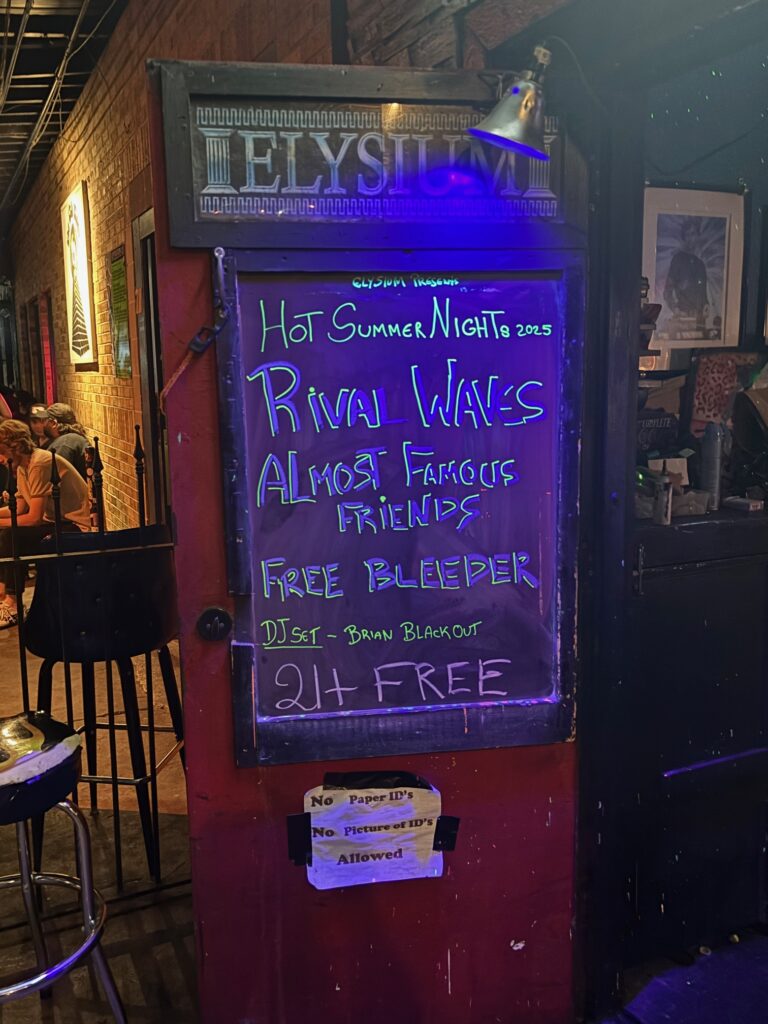 ELYSIUM
ELYSIUM PRESENTS
HOT SUMMER NIGHTS 2025
RIVAL WAVES
ALMOST FAMOUS
FRIENDS
FREE BLEEDER
DJ SET - BRIAN BLACKOUT
21+ FREE
No Paper ID's
No Picture of ID's
Allowed